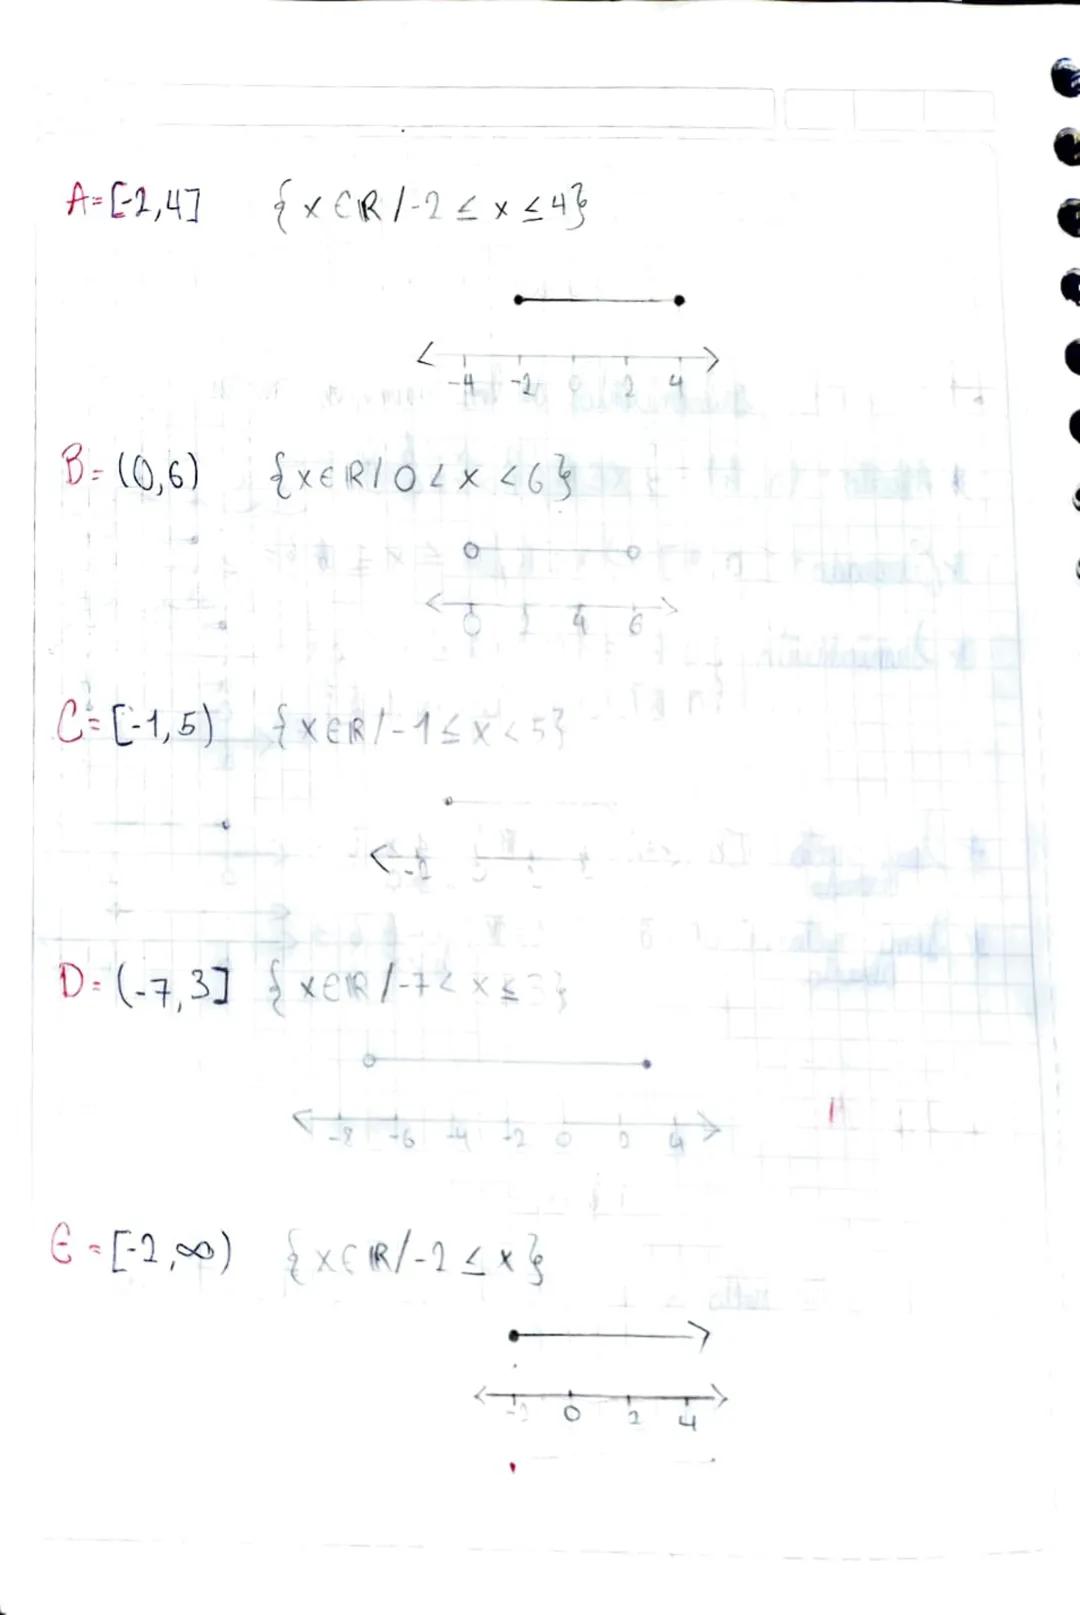 A=[-2,4] {x∈ℝ/-2≤x≤4}
-4 -2 0 2 4
B=(0,6) {x∈ℝ/0<x<6}
0 2 4 6
C=[-1,5) {x∈ℝ/-1≤x<5}
-2
D=(-7,3] {x∈ℝ/-7<x≤3}
-8 -6 -4 -2 0 2 4
E=[-2,∞) {x∈ℝ/-2≤x}
-2 0 2 4